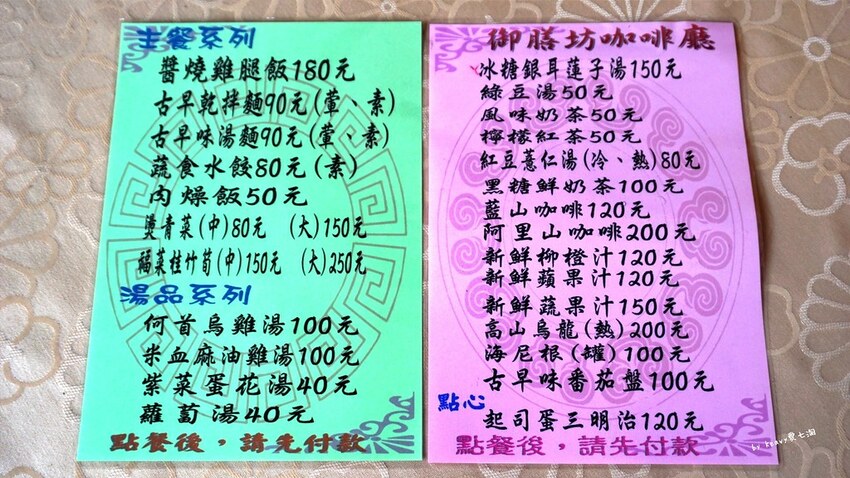 主餐系列
醬燒雞腿飯180元
古早乾拌麵90元(葷、素)
古早味湯麵90元(葷、素)
蔬食水餃80元(素)
肉燥飯50元
燙青菜(中)80元 (大)150元
福菜桂竹筍(中)150元 (大)250元
湯品系列
何首烏雞湯100元
米血麻油雞湯100元
紫菜蛋花湯40元
蘿蔔湯40元
點餐後，請先付款
御膳坊咖啡廳
冰糖銀耳蓮子湯150元
綠豆湯50元
風味奶茶50元
檸檬紅茶50元
紅豆薏仁湯(冷、熱)80元
黑糖鮮奶茶100元
藍山咖啡120元
阿里山咖啡200元
新鮮柳橙汁120元
新鮮蘋果汁120元
新鮮蔬果汁150元
高山烏龍(熱)200元
海尼根(罐)100元
古早味番茄盤100元
點心
起司蛋三明治120元
點餐後，請先付款